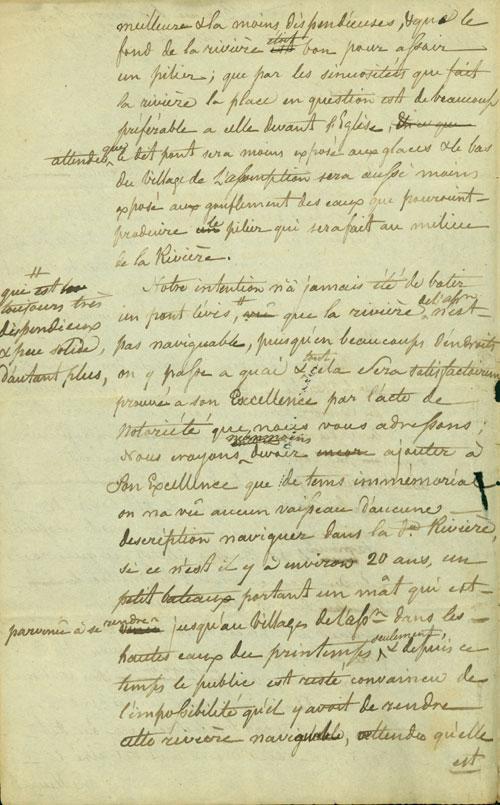 meilleure & la moins dispendieuses, & que le
fond de la rivière étoit bon pour assoir
un pilier; que par les sinuosités que fait
la rivière la place en question est de beaucoup
préférable a celle devant l'Eglise,
attendu que le dit pont sera moins exposé aux glaces & le bas
du Village de L'assomption sera aussi moins
exposé aux gonflement des eaux que pourroint
produire le pilier qui sera fait au milieu
de la Rivière.
Notre intention n'a jamais été de batir
un pont lévis, # que la rivière de l'assn n'est
# qui est
toujours très
dispendieux
& peu solide,
d'autant plus,
pas naviguable, puisqu'en beaucoup d'endroits
on y passe a quai & tout cela sera satisfactoirement
prouvé a son Excellence par l'acte de
Notoriété que nous vous adressons;
Nous croyons néanmoins devoir ajouter à
Son Excellence que de tems immémorial
on n'a vû aucun vaisseau d'aucune
description naviguer dans la de Rivière,
si ce n'est il y à environ 20 ans, un
petit bateaux portant un mât qui est
parvenu à se rendre jusqu'au Village de L'assn dans les
hautes eaux du printemps seulement, & depuis ce
temps le public est resté convaincu de
l'impossibilité qu'il y avoit de rendre
cette rivière naviguable, attendu qu'elle
est